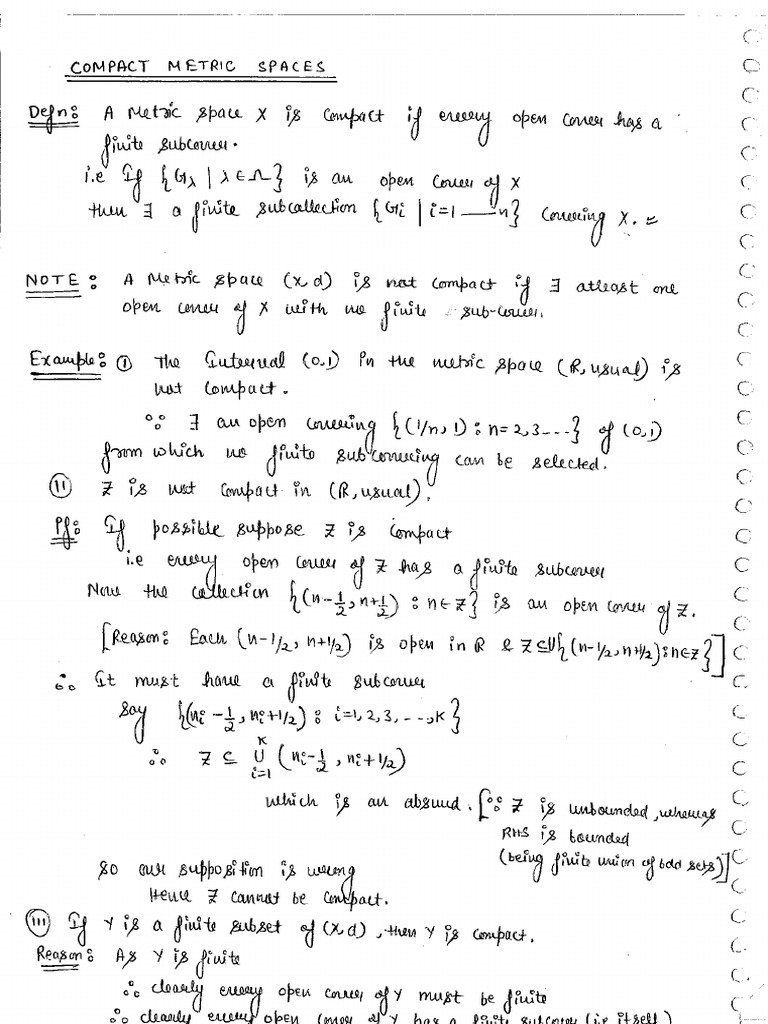 COMPACT METRIC SPACES
Defn: A Metric space X is compact if every open cover has a
finite subcover.
i.e If {Gλ | λ ∈ Λ} is an open cover of X
then ∃ a finite subcollection {Gi | i=1 —— n} covering X. =
NOTE: A Metric space (X,d) is not compact if ∃ atleast one
open cover of X with no finite sub-cover.
Example: (i) The Interval (0,1) in the metric space (R,usual) is
not compact.
∵ ∃ an open covering {(1/n, 1) : n=2,3----} of (0,1)
from which no finite subcovering can be selected.
(ii) Z is not compact in (R,usual).
Pf: If possible suppose Z is compact
i.e every open cover of Z has a finite subcover
Now the collection {(n-1/2, n+1/2) : n∈Z} is an open cover of Z.
[Reason: Each (n-1/2, n+1/2) is open in R & Z⊆U{(n-1/2,n+1/2):n∈Z}]
∴ It must have a finite subcover
say {(ni-1/2, ni+1/2) : i=1,2,3,--,K}
∴ Z ⊆ K U i=1 (ni-1/2, ni+1/2)
which is an absurd. [∵ Z is unbounded, whereas
RHS is bounded
(being finite union of bdd sets)]
so our supposition is wrong
Hence Z cannot be compact.
(iii) If Y is a finite subset of (X,d), then Y is compact.
Reason: As Y is finite
∴ clearly every open cover of Y must be finite
∴ clearly every open cover of Y has a finite subcover (i.e itself)